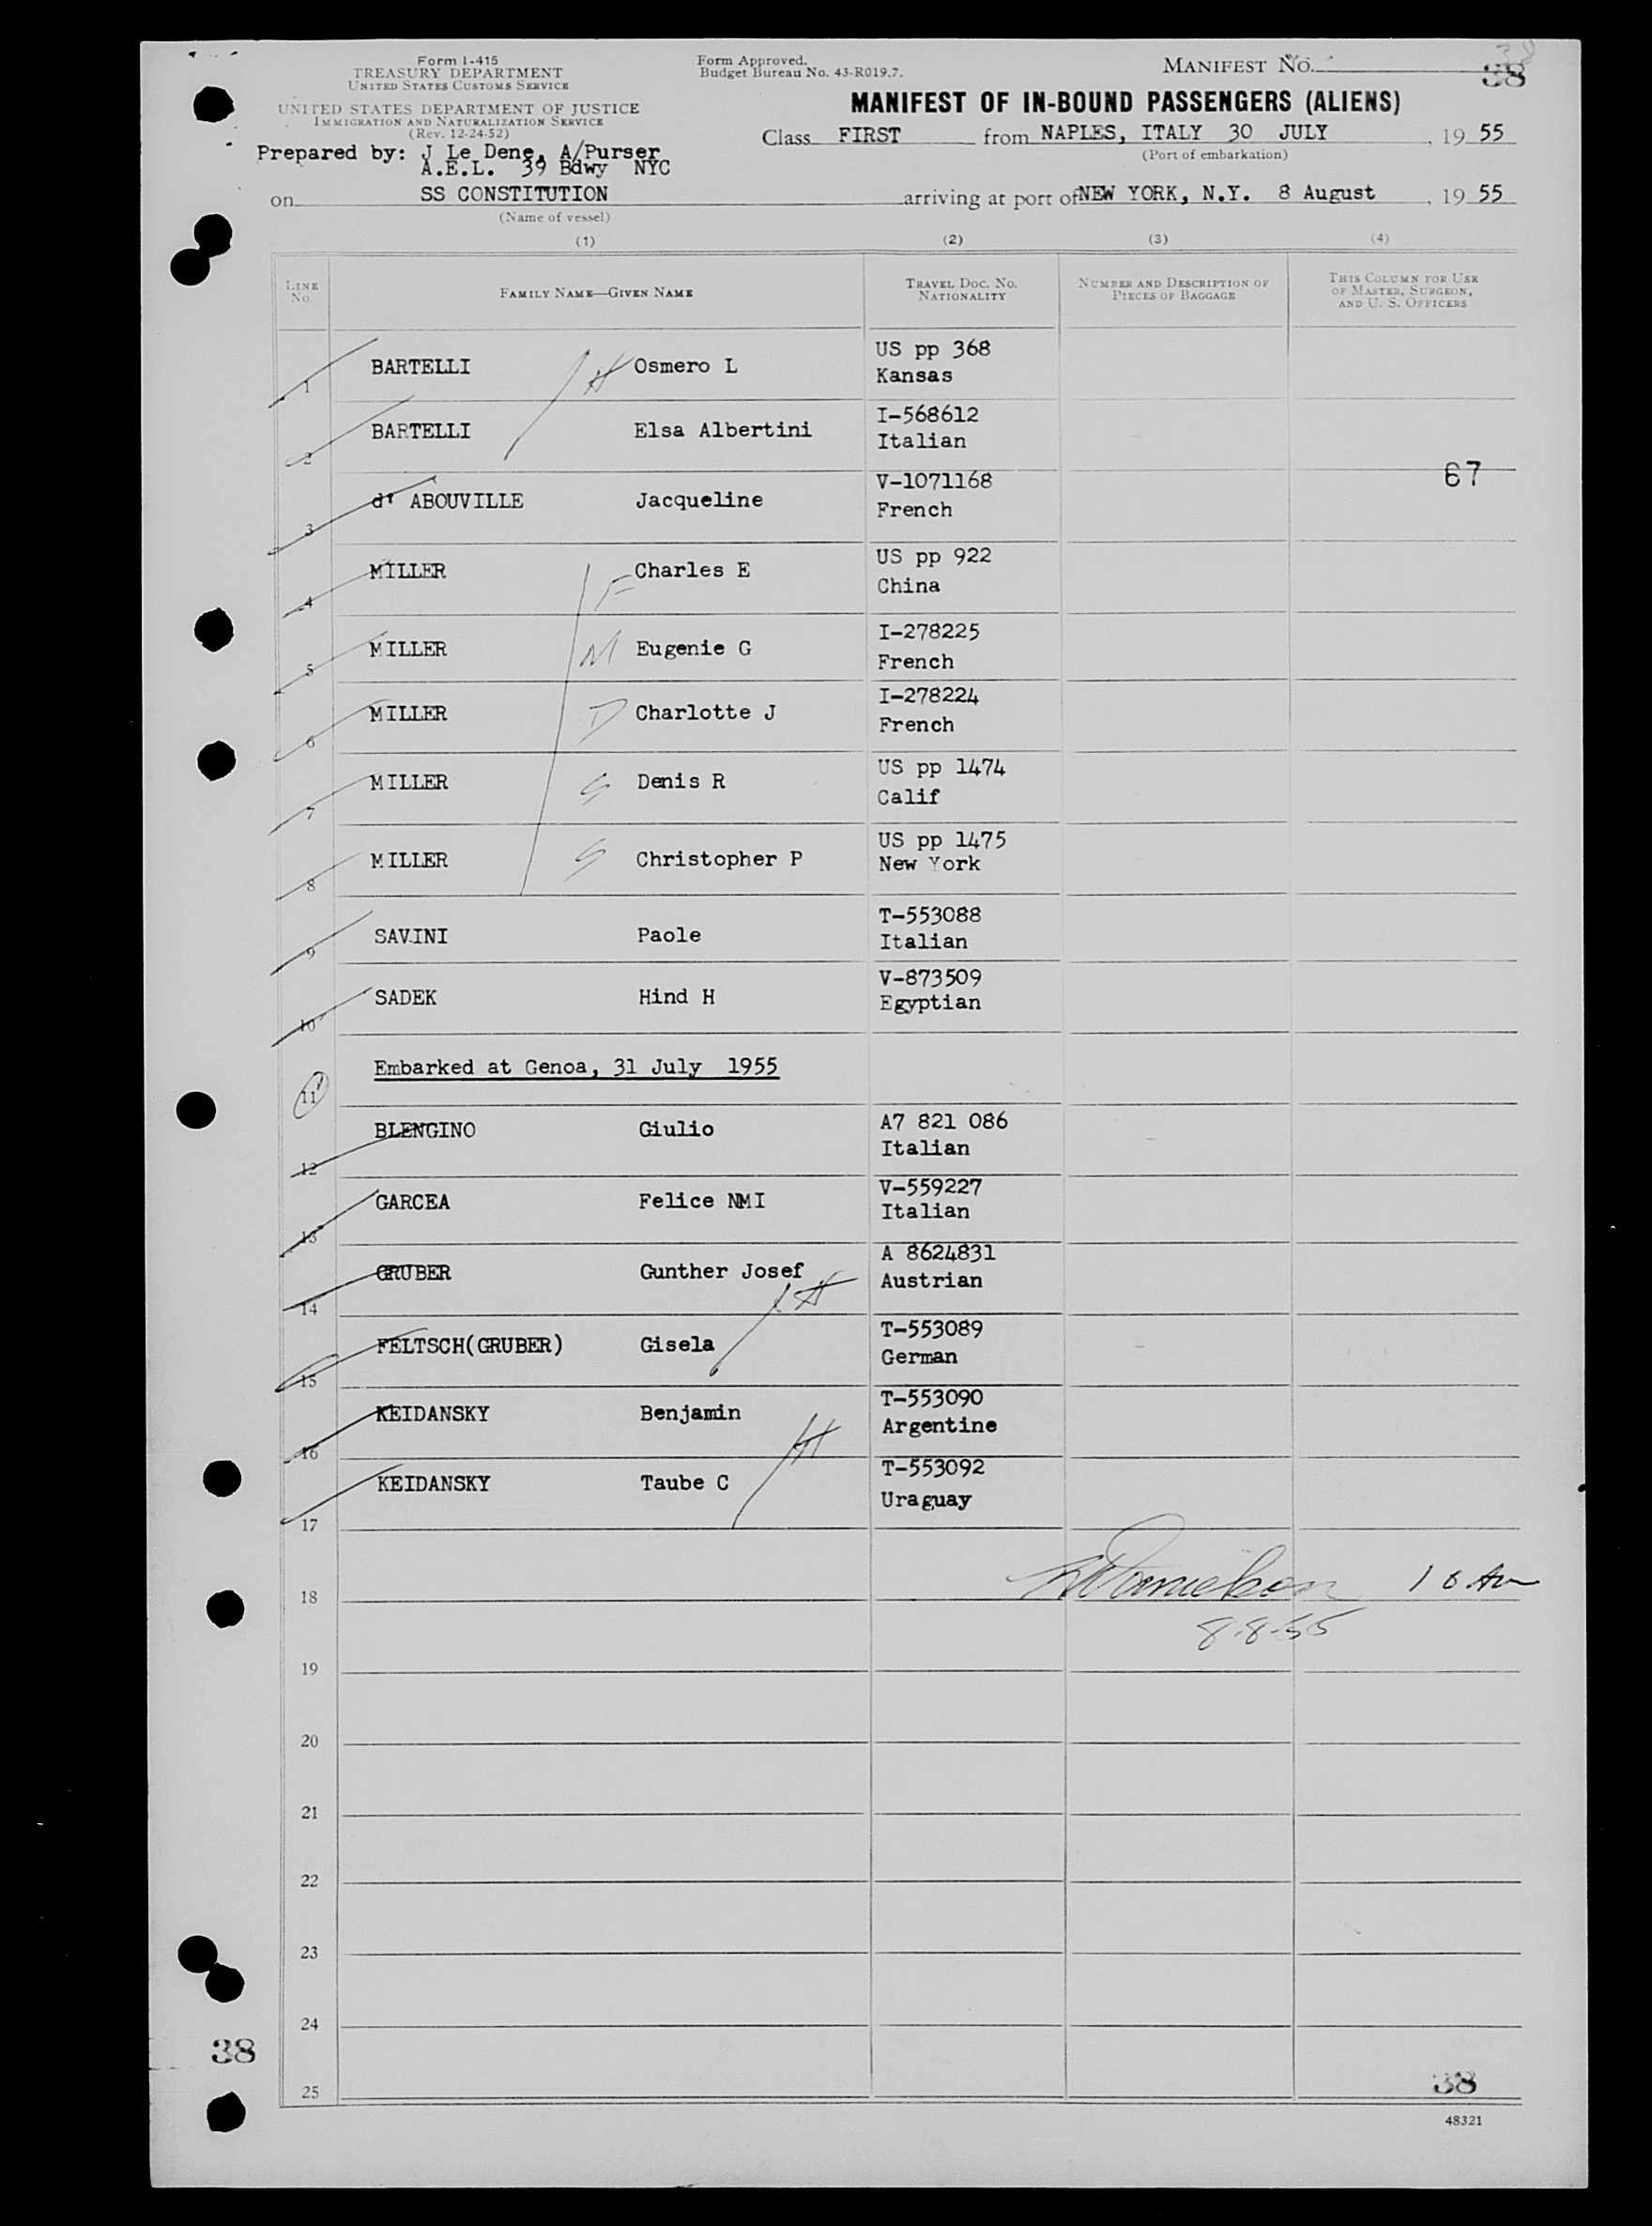 Form I-415
TREASURY DEPARTMENT
UNITED STATES CUSTOMS SERVICE
UNITED STATES DEPARTMENT OF JUSTICE
IMMIGRATION AND NATURALIZATION SERVICE
(Rev. 12-24-52)
Form Approved.
Budget Bureau No. 43-R019.7.
MANIFEST NO. 38
MANIFEST OF IN-BOUND PASSENGERS (ALIENS)
Class FIRST from NAPLES, ITALY 30 JULY, 19 55
(Port of embarkation)
Prepared by: J Le Dene, A/Purser
A.E.L. 39 Bdwy NYC
on SS CONSTITUTION arriving at port of NEW YORK, N.Y. 8 August, 19 55
(Name of vessel)
(1) (2) (3) (4)
LINE NO. FAMILY NAME—GIVEN NAME TRAVEL DOC. NO. NATIONALITY NUMBER AND DESCRIPTION OF PIECES OF BAGGAGE THIS COLUMN FOR USE OF MASTER, SURGEON, AND U. S. OFFICERS
1 BARTELLI H Osmero L US pp 368
Kansas
2 BARTELLI Elsa Albertini I-568612
Italian
67
3 d' ABOUVILLE Jacqueline V-1071168
French
4 MILLER F Charles E US pp 922
China
5 MILLER M Eugenie G I-278225
French
6 MILLER D Charlotte J I-278224
French
7 MILLER S Denis R US pp 1474
Calif
8 MILLER S Christopher P US pp 1475
New York
9 SAVINI Paole T-553088
Italian
10 SADEK Hind H V-873509
Egyptian
11 Embarked at Genoa, 31 July 1955
12 BLENGINO Giulio A7 821 086
Italian
13 GARCEA Felice NMI V-559227
Italian
14 GRUBER Gunther Josef H A 8624831
Austrian
15 FELTSCH(GRUBER) Gisela T-553089
German
16 KEIDANSKY Benjamin H T-553090
Argentine
17 KEIDANSKY Taube C T-553092
Uraguay
18
8-8-55
19
20
21
22
23
24
38
25
38
48321